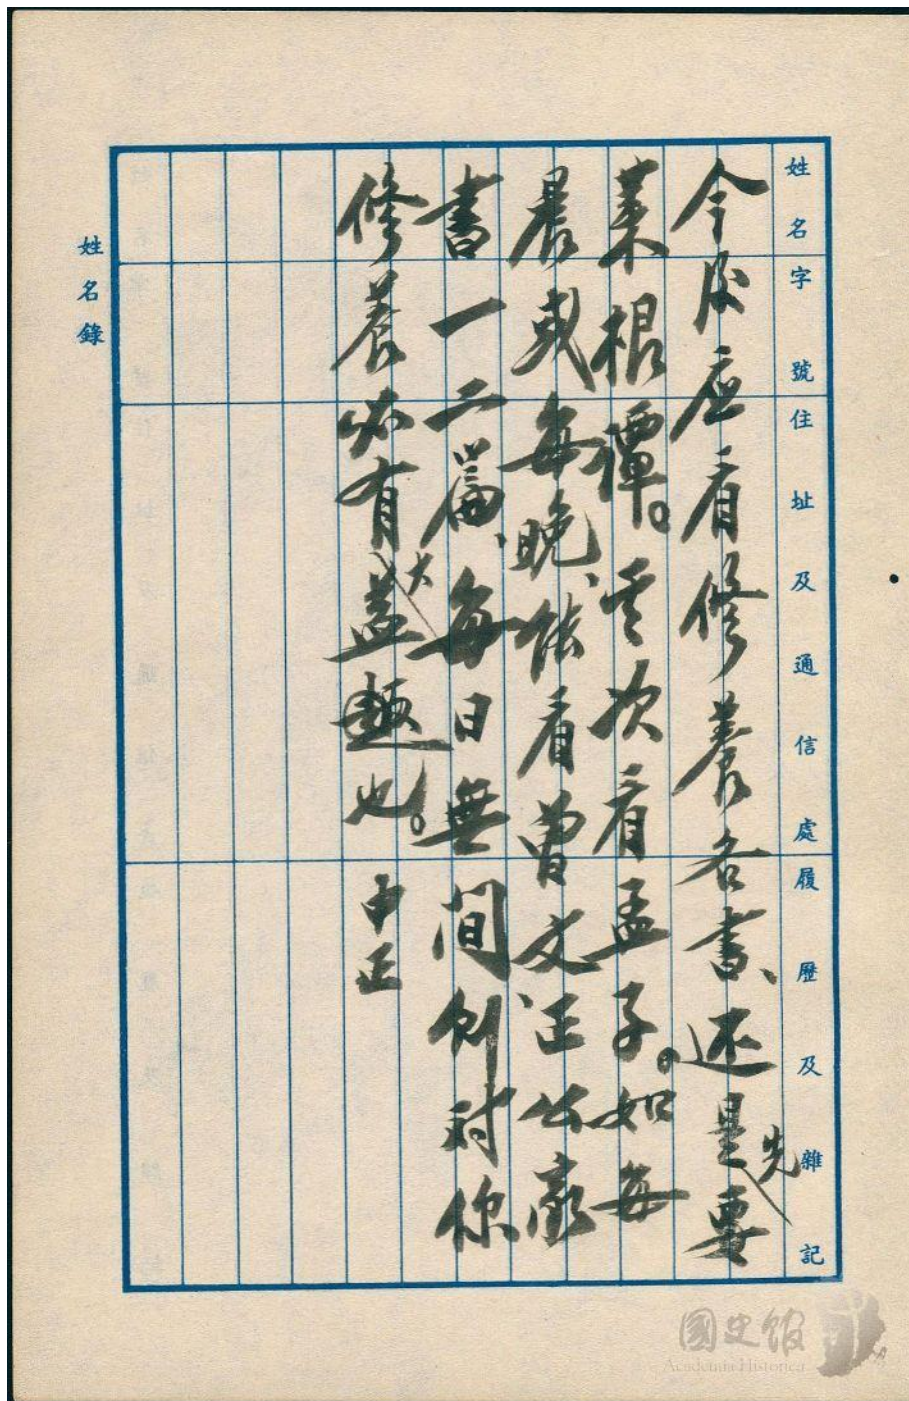 姓名 字號 住址及通信處 履歷及雜記
今後应看修養各書、还是先要
菜根譚。其次看孟子。如每
晨或每晚、能看曾文正公家
書一二篇、每日無間、則对你
修養必有大益趣也。 中正
姓名錄
國史館
Academia Historica